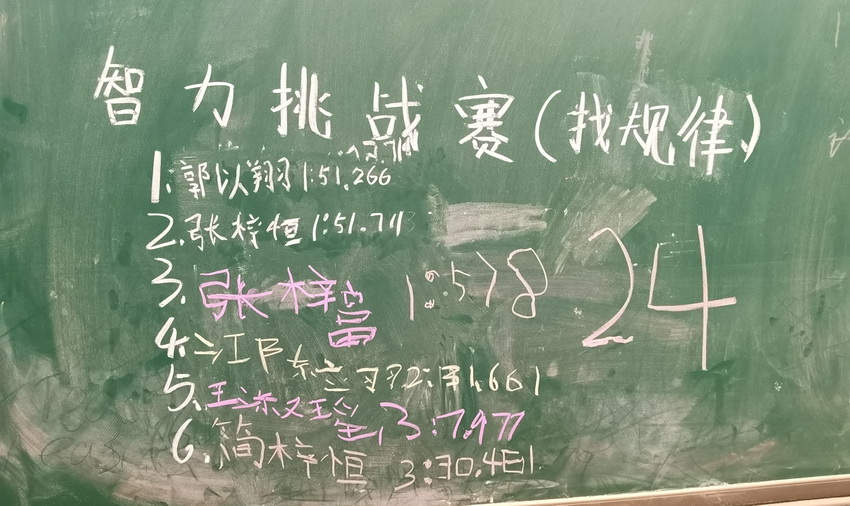 智力挑战赛(找规律)
1.郭以翔 1:51.266
2.张梓恒 1:51.711
3.张梓富 1:578 24
4.江 2:31.661
5.王 3:7.977
6.简梓恒 3:30.4